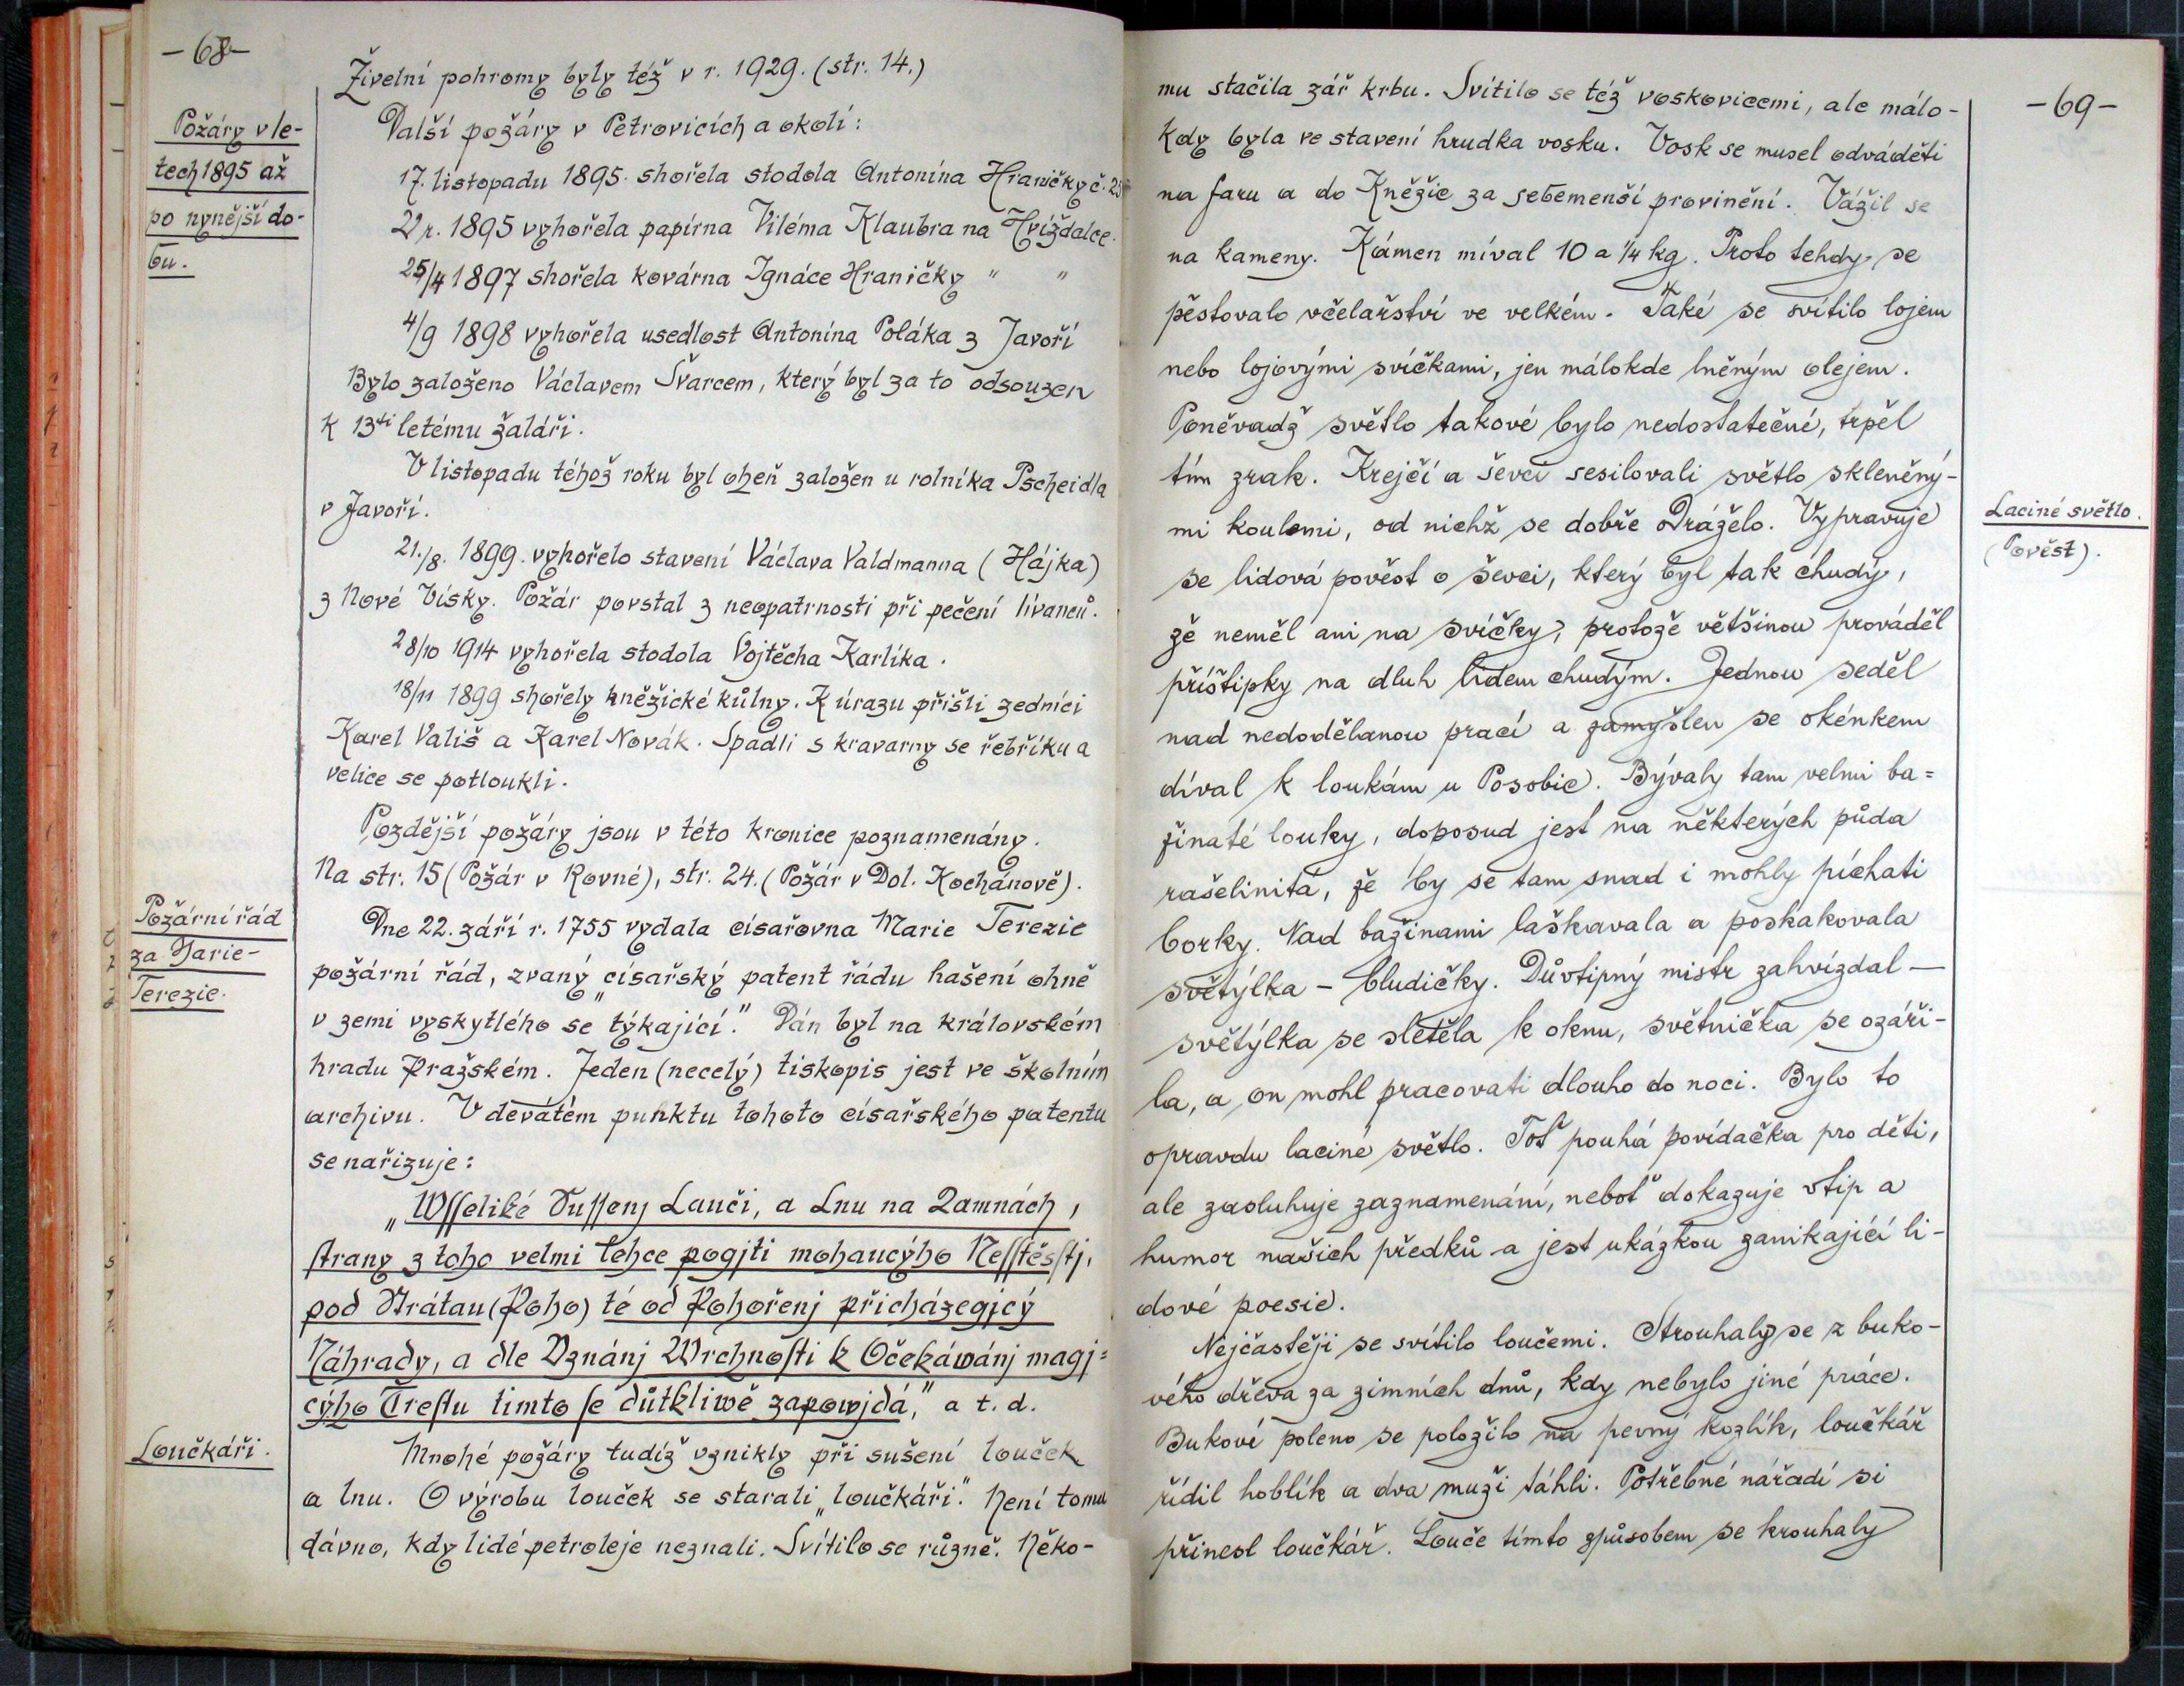 -68-
Živelní pohromy byly též v r. 1929. (str. 14.)
Požáry v le-
tech 1895 až
po nynější do-
bu.
Další požáry v Petrovicích a okolí:
17. listopadu 1895. shořela stodola Antonína Hraničky č. 25
V r. 1895 vyhořela papírna Viléma Klaubra na Hvížďalce.
25/4 1897 shořela kovárna Ignáce Hraničky " "
4/9 1898 vyhořela usedlost Antonína Poláka z Javoří
Bylo založeno Václavem Švarcem, který byl za to odsouzen
k 13ti letému žaláři.
V listopadu téhož roku byl oheň založen u rolníka Pscheidla
v Javoří.
21./8. 1899. vyhořelo stavení Václava Valdmanna (Hájka)
z Nové Vísky. Požár povstal z neopatrnosti při pečení lívanců.
28/10 1914 vyhořela stodola Vojtěcha Karlíka.
18/11 1899 shořely kněžické kůlny. K úrazu přišli zedníci
Karel Vališ a Karel Novák. Spadli s kravarny se řebříku a
velice se potloukli.
Pozdější požáry jsou v této kronice poznamenány.
Na str. 15 (Požár v Rovné), str. 24. (Požár v Dol. Kochánově).
Požární řád
za Marie-
Terezie.
Dne 22. září r. 1755 vydala císařovna Marie Terezie
požární řád, zvaný „císařský patent řádu hašení ohně
v zemi vyskytlého se týkající." Dán byl na královském
hradu Pražském. Jeden (necelý) tiskopis jest ve školním
archivu. V devátém punktu tohoto císařského patentu
se nařizuje:
„Wsseliké Sussenj Lauči, a Lnu na Kamnách,
strany z toho velmi lehce pogjti mohaucýho Nesstěstj,
pod Strátau (Koho) té od Pohořenj přicházegjcý
Náhrady, a dle Uznánj Wrchnosti k Očekáwánj magj=
cýho Trestu timto se důtkliwě zapowjdá," a t. d.
Loučkáři.
Mnohé požáry tudíž vznikly při sušení louček
a lnu. O výrobu louček se starali „loučkáři." Není tomu
dávno, kdy lidé petroleje neznali. Svítilo se různě. Něko-
-69-
mu stačila zář krbu. Svítilo se též voskovicemi, ale málo-
kdy byla ve stavení hrudka vosku. Vosk se musel odváděti
na faru a do Kněžic za sebemenší provinění. Vážil se
na kameny. Kámen míval 10 a 1/4 kg. Proto tehdy se
pěstovalo včelařství ve velkém. Také se svítilo lojem
nebo lojovými svíčkami, jen málokde lněným olejem.
Poněvadž světlo takové bylo nedostatečné, trpěl
tím zrak. Krejčí a ševci sesilovali světlo skleněný-
mi koulemi, od nichž se dobře odráželo. Vypravuje
Laciné světlo.
(Pověst).
se lidová pověst o ševci, který byl tak chudý,
že neměl ani na svíčky, protože většinou prováděl
příštipky na dluh lidem chudým. Jednou seděl
nad nedodělanou prací a zamyšlen se okénkem
díval k loukám u Posobic. Bývaly tam velmi ba=
žinaté louky, doposud jest na některých půda
rašelinitá, že by se tam snad i mohly píchati
borky. Nad bažinami laškavala a poskakovala
světýlka - bludičky. Důvtipný mistr zahvízdal -
světýlka se sletěla k oknu, světnička se ozáři-
la, a on mohl pracovati dlouho do noci. Bylo to
opravdu laciné světlo. Toť pouhá povídačka pro děti,
ale zasluhuje zaznamenání, neboť dokazuje vtip a
humor našich předků a jest ukázkou zanikající li-
dové poesie.
Nejčastěji se svítilo loučemi. Strouhaly se z buko-
vého dřeva za zimních dnů, kdy nebylo jiné práce.
Bukové poleno se položilo na pevný kozlík, loučkář
řídil hoblík a dva muži táhli. Potřebné nářadí si
přinesl loučkář. Louče tímto způsobem se krouhaly